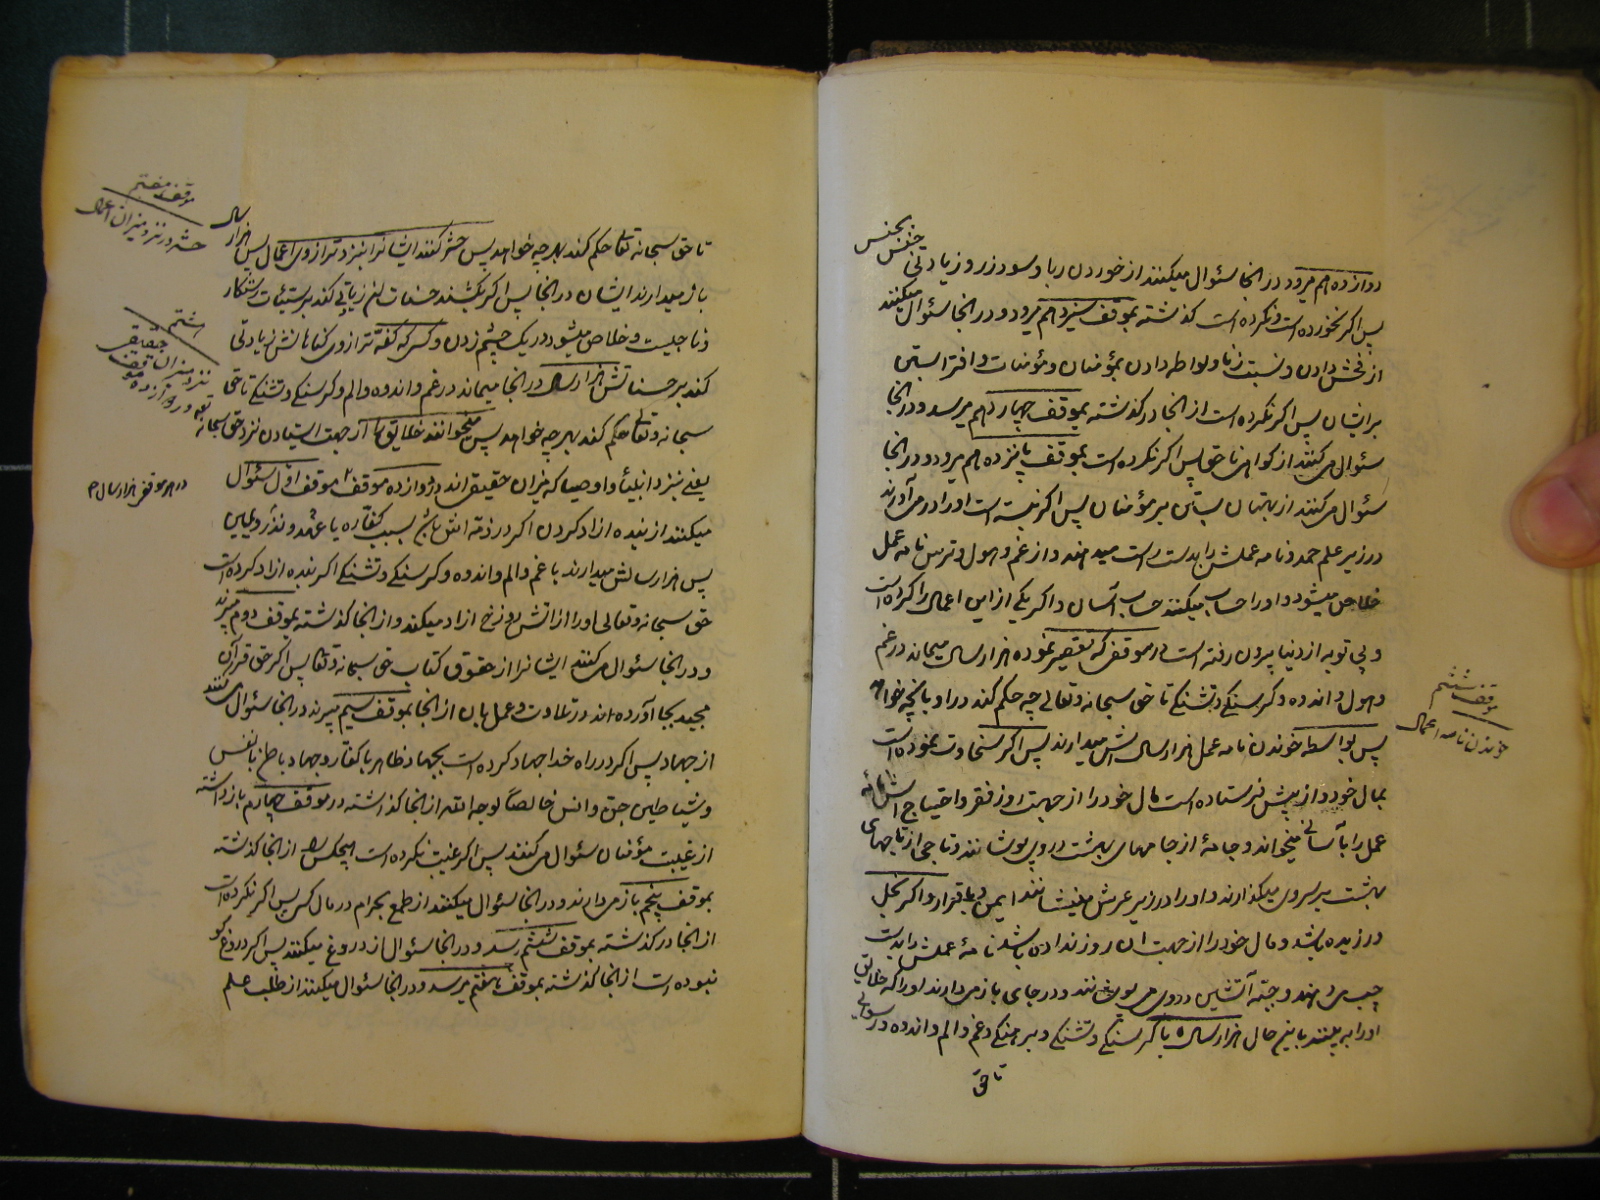 دوازدهم میرود در انجا سئوال میکنند از خوردن ربا و سود زر و زیادتی جنس بجنس
پس اکر نخورده است و نکرده است کذشته بموقف سیزدهم میرود و در انجا سئوال میکنند
از فحش دادن و نسبت زنا و لواطه دادن بمؤمنان و مؤمنات و افترا بستن
بر ایشان پس اکر نکرده است از انجا درکذشته بموقف چهاردهم میرسد و در انجا
سئوال می کنند از کواهی ناحق پس اکر نکرده است بموقف پانزدهم میرود و در انجا
سئوال می کنند از بهتان بستن بر مؤمنان پس اکر نبسته است او را در می آورند
در زیر علم حمد و نامه عملش را بدست راست میدهند و از غم و هول و ترس نامه عمل
خلاص میشود و او را حساب میکنند حساب آسان و اکر یکی از این اعمال را کرده است
و بی توبه از دنیا بیرون رفته است در موقفی که تقصیر نموده هزار سال میماند در غم
و هول و اندوه و کرسنکی و تشنکی تا حق سبحانه و تعالی چه حکم کند در او بانچه خواهد
پس بواسطه خوندن نامه عمل هزار سالش میدارند پس اکر سخاوت نموده است
بمال خود و از پیش فرستاده است مال خود را از جهت روز فقر و احتیاج اش نامه
عمل را بآسانی میخواند و جامهٔ از جامهای بهشت در وی پوشانند و تاجی از تاجهای
بهشت بر سر وی میکذارند و او را در زیر عرش مینشانند ایمن و با قرار و اکر بخل
ورزیده باشد و مال خود را از جهت ان روز نداده باشد نامهٔ عملش را بدست
چپ می دهند و جبّه آتشین در وی می پوشانند و در جای باز می دارند او را که خلایق
او را به بینند باین حال هزار سال با کرسنکی و تشنکی و برهنکی و غم و الم و اندوه و رسوائی
تا حق
موقف ششم
خوندن نامه اعمال
تا حق سبحانه و تعالی حکم کند بهر چه خواهد پس حشر کنند ایشانرا بنزد ترازوی اعمال پس هزار سال
باز میدارند ایشان در انجا پس اکر بکشند حسنات او زیاتی کند بر سیّئات رستکار
و ناجیست و خلاص میشود در یک چشم زدن و کسی که کفّه ترازوی کناهانش زیادتی
کند بر حسناتش هزار سال در انجا میماند در غم و اندوه و الم و کرسنکی و تشنکی تا حق
سبحانه و تعالی حکم کند بهر چه خواهد پس میخوانند خلایق را از جهت ایستادن نزد حق سبحانه و تعالی
یعنی نزد انبیا و اوصیا که میزان حقیقی اند در دوازده موقف موقف اول سئوال
میکنند از بنده ازاد کردن اکر در ذمّه اش باشد بسبب کفّاره یا عهد و نذر و یمین
پس هزار سالش میدارند با غم و الم و اندوه و کرسنکی و تشنکی اکر بنده ازاد کرده است
حق سبحانه و تعالی او را از اتش دوزخ ازاد میکند و از انجا کذشته بموقف دوم میرند
و در انجا سئوال می کنند ایشانرا از حقوق کتاب حق سبحانه و تعالی پس اکر حق قران
مجید بجا آورده اند در تلاوت و عمل بان از انجا بموقف سیم میرند در انجا سئوال می کنند
از جهاد پس اکر در راه خدا جهاد کرده است بجهاد ظاهر با کفّار و جهاد باطن با نفس
و شیاطین جن و انس خالصًا لوجه الله از انجا کذاشته در موقف چهارم باز داشته
از غیبت مؤمنان سئوال می کنند پس اکر غیبت نکرده است هیچکس را از انجا کذشته
بموقف پنجم باز می دارند و در انجا سئوال میکنند از طمع بحرام در مال کسی پس اکر نکرده است
از انجا درکذشته بموقف ششم رسد و در انجا سئوال از دروغ میکنند پس اکر دروغ کو
نبوده است از انجا کذشته بموقف هفتم میرسد و در انجا سئوال میکنند از طلب علم
موقف هفتم
حشر در نزد میزان اعمال
هشتم
نزد میزان حقیقی
در دوازده موقف
در هر موقفی هزار سال